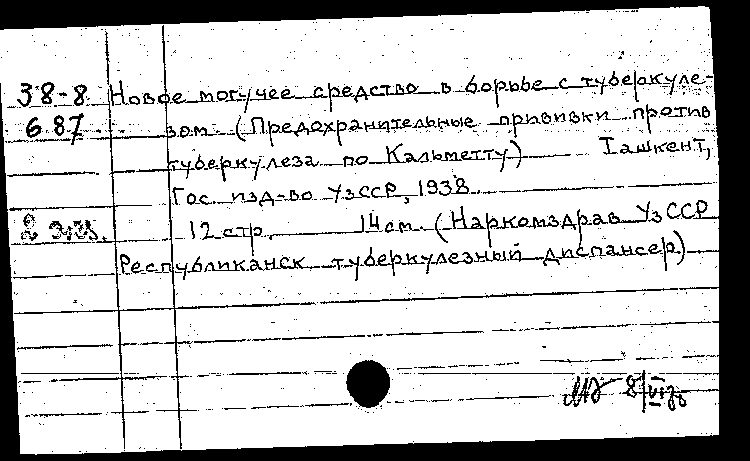 38-8 Новое могучее средство в борьбе с туберкуле-
687 зом (Предохранительные прививки против
туберкулеза по Кальметту) Ташкент,
Гос. изд-во УзССР, 1938.
2 экз. 12 стр. 14 см. (Наркомздрав УзССР
Республиканск туберкулезный диспансер)
8/VI